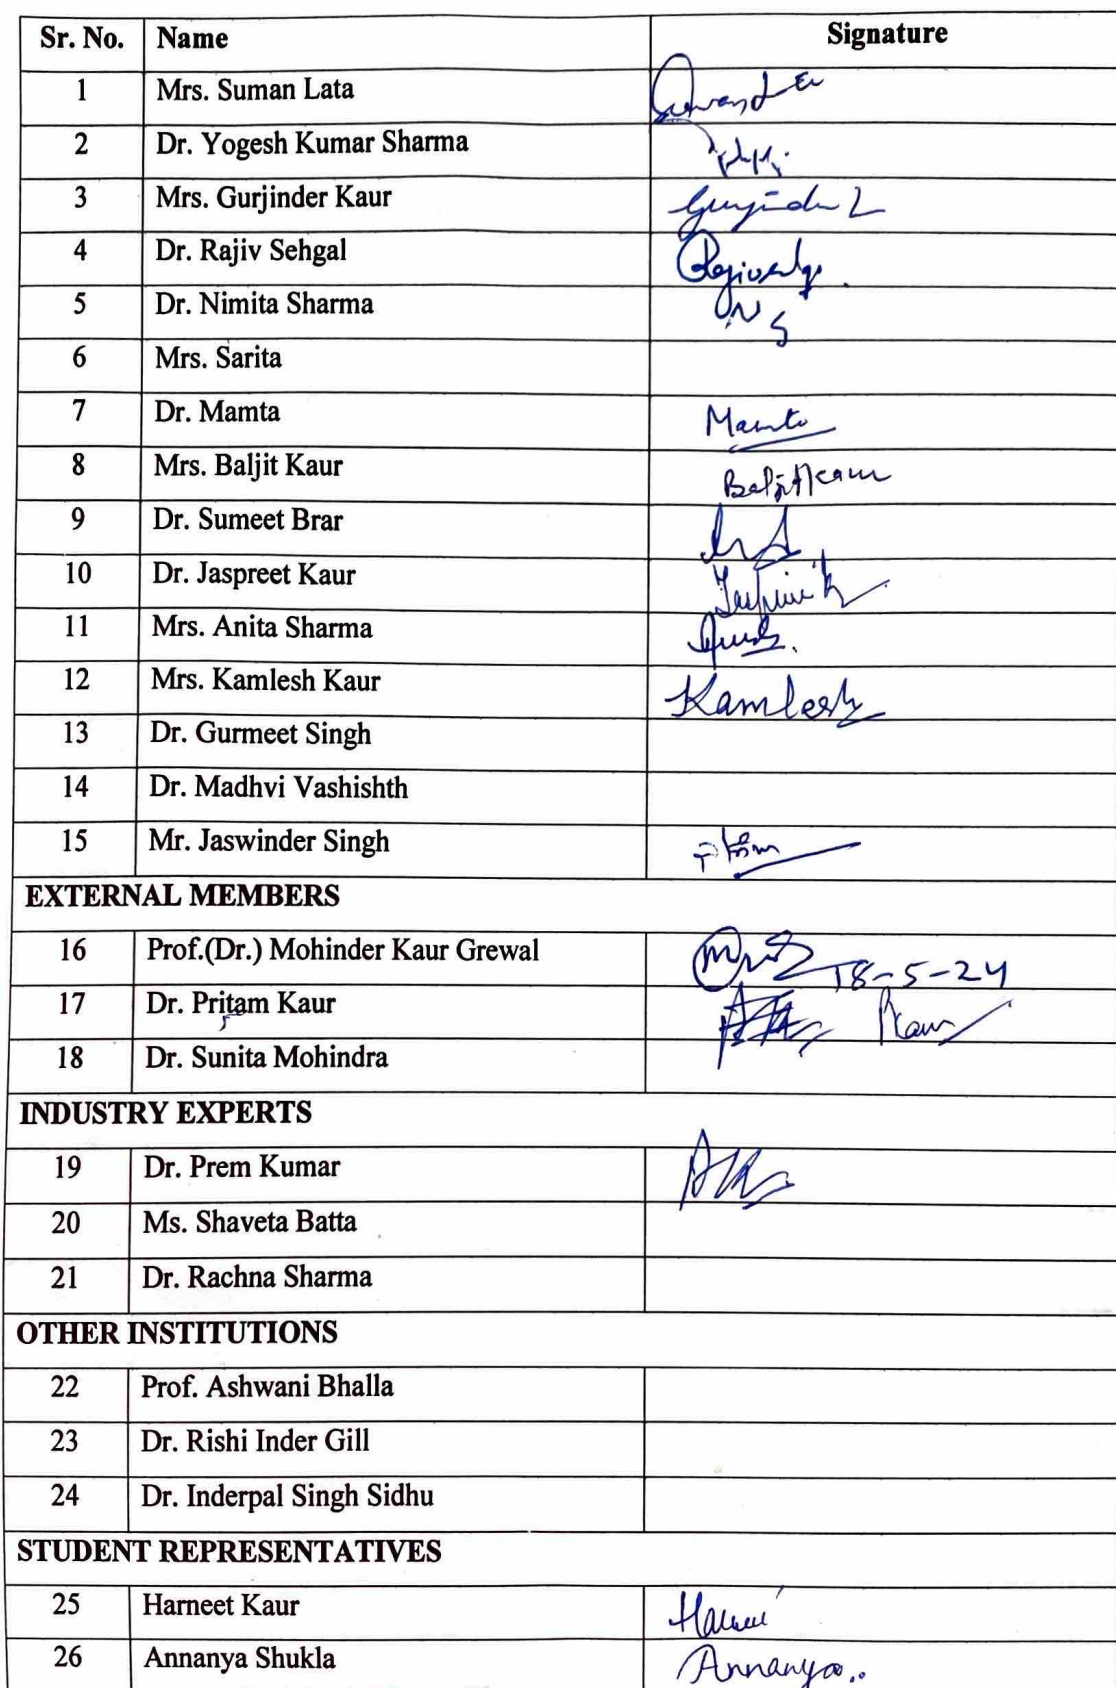 Sr. No. Name Signature
1 Mrs. Suman Lata
2 Dr. Yogesh Kumar Sharma
3 Mrs. Gurjinder Kaur
4 Dr. Rajiv Sehgal
5 Dr. Nimita Sharma NS
6 Mrs. Sarita
7 Dr. Mamta Mamta
8 Mrs. Baljit Kaur Baljit Kaur
9 Dr. Sumeet Brar
10 Dr. Jaspreet Kaur
11 Mrs. Anita Sharma
12 Mrs. Kamlesh Kaur Kamlesh
13 Dr. Gurmeet Singh
14 Dr. Madhvi Vashishth
15 Mr. Jaswinder Singh
EXTERNAL MEMBERS
16 Prof.(Dr.) Mohinder Kaur Grewal 18-5-24
17 Dr. Pritam Kaur PKaur
18 Dr. Sunita Mohindra
INDUSTRY EXPERTS
19 Dr. Prem Kumar
20 Ms. Shaveta Batta
21 Dr. Rachna Sharma
OTHER INSTITUTIONS
22 Prof. Ashwani Bhalla
23 Dr. Rishi Inder Gill
24 Dr. Inderpal Singh Sidhu
STUDENT REPRESENTATIVES
25 Harneet Kaur
26 Annanya Shukla Annanya..